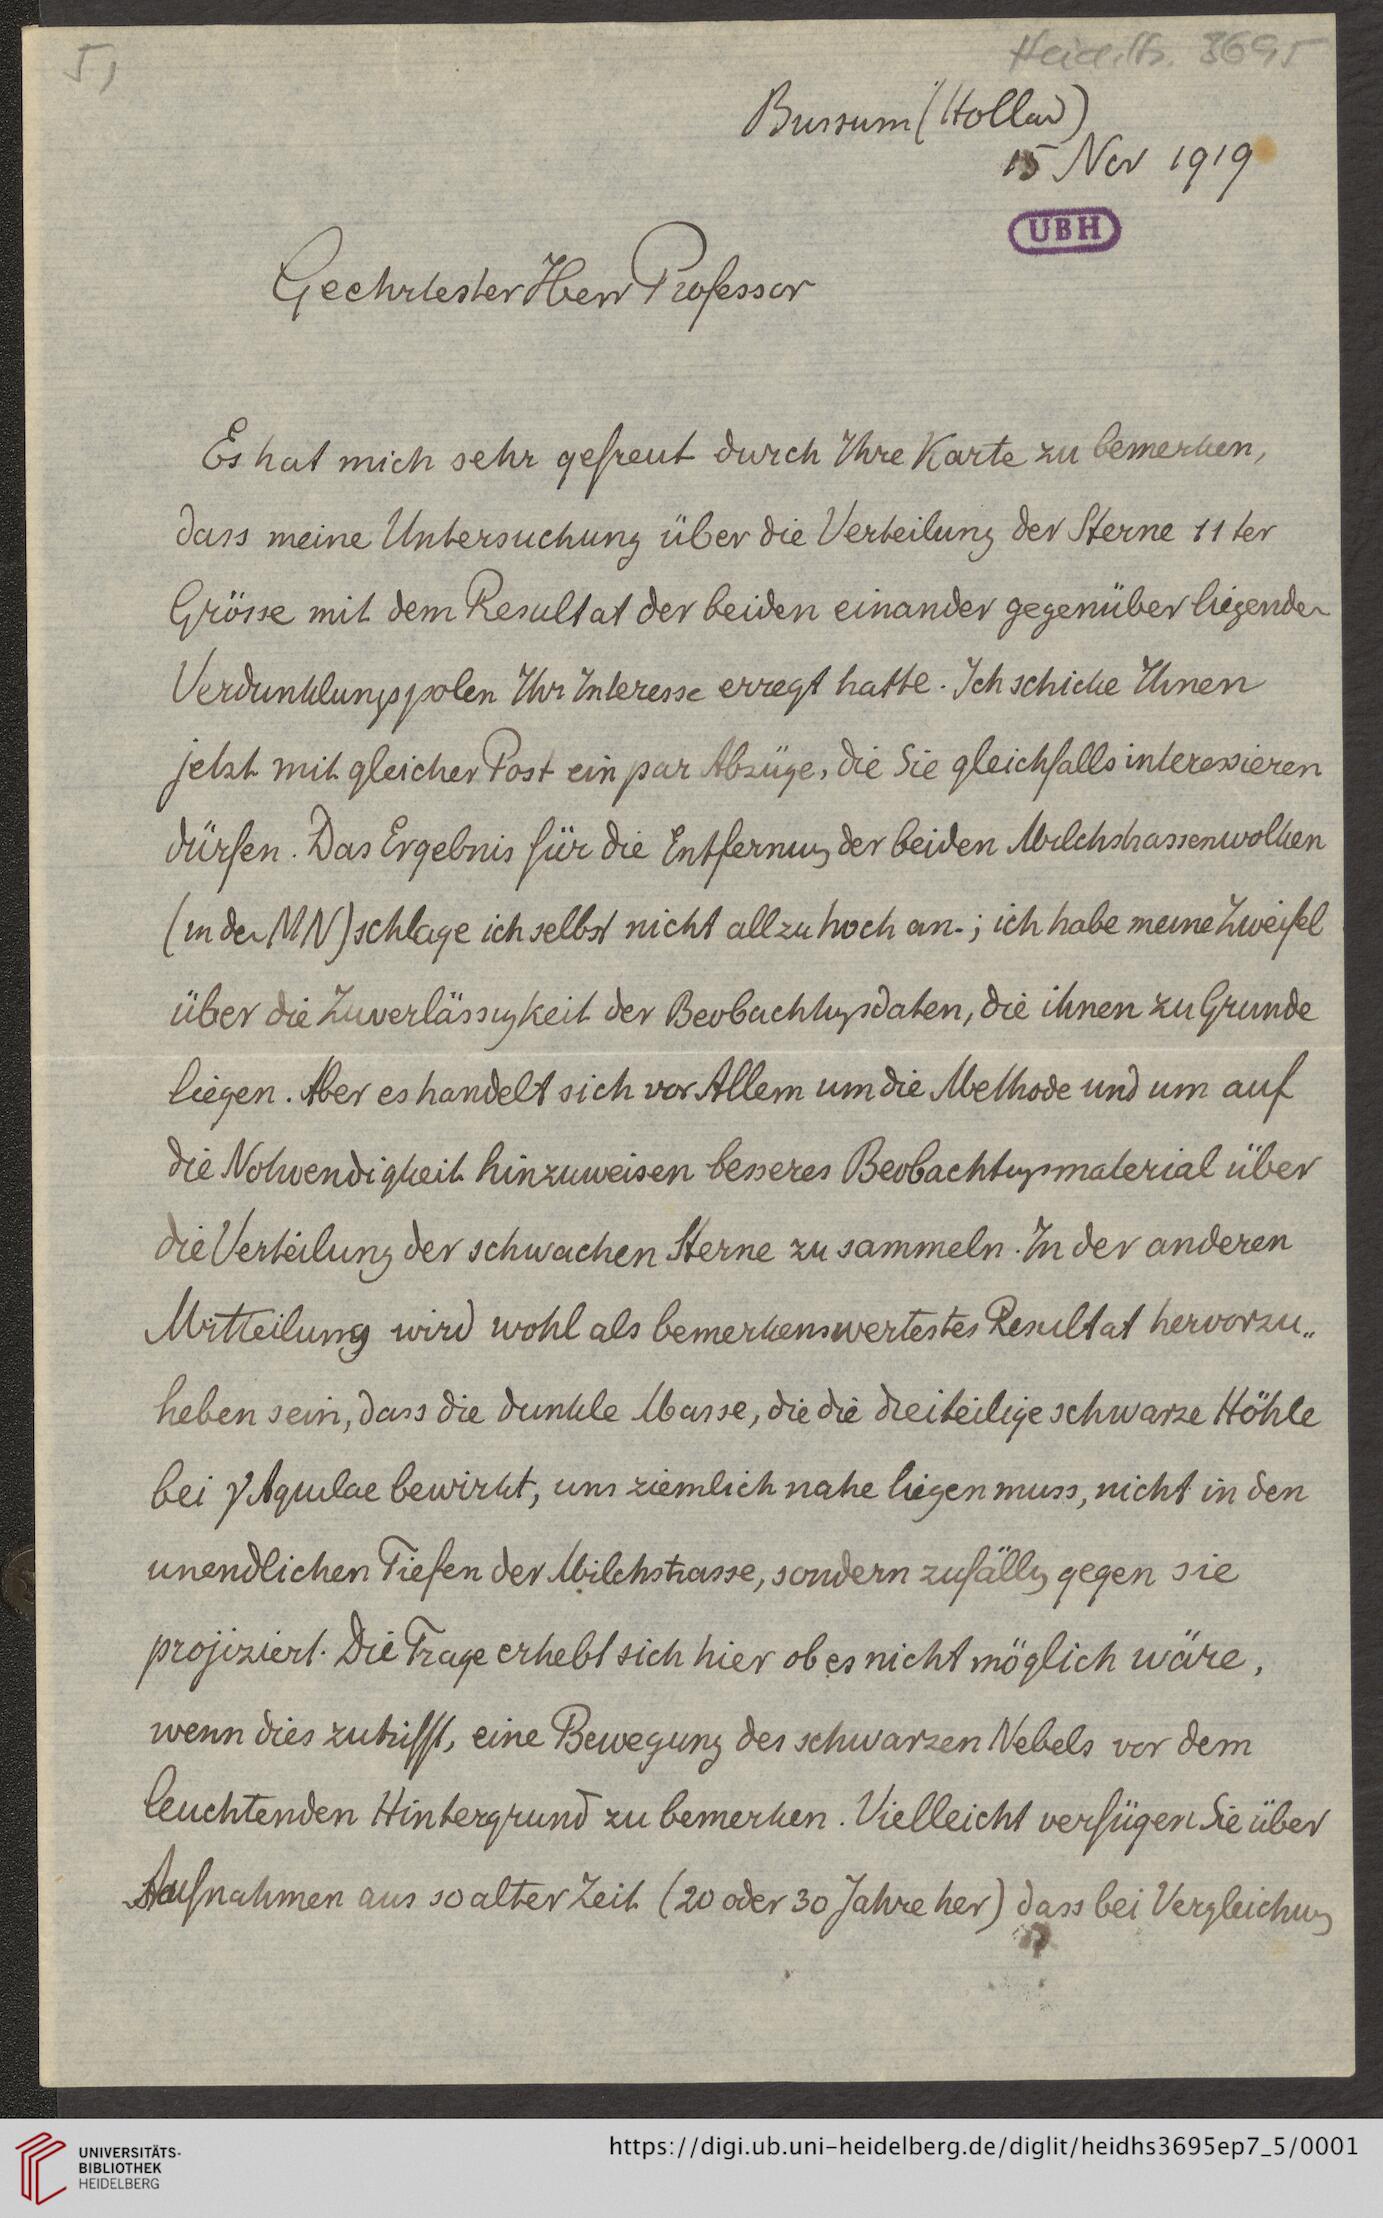 5,
Heid. Hs. 3695
Bussum (Holland)
15 Nov 1919
UBH
Geehrtester Herr Professor
Es hat mich sehr gefreut durch Ihre Karte zu bemerken,
dass meine Untersuchung über die Verteilung der Sterne 11ter
Grösse mit dem Resultat der beiden einander gegenüber liegenden
Verdunklungspolen Ihr Interesse erregt hatte. Ich schicke Ihnen
jetzt mit gleicher Post ein par Abzüge, die Sie gleichfalls interessieren
dürfen. Das Ergebnis für die Entfernung der beiden Milchstrassenwolken
(in den MN) schlage ich selbst nicht allzu hoch an.; ich habe meine Zweifel
über die Zuverlässigkeit der Beobachtungsdaten, die ihnen zu Grunde
liegen. Aber es handelt sich vor Allem um die Methode und um auf
die Notwendigkeit hinzuweisen besseres Beobachtungsmaterial über
die Verteilung der schwachen Sterne zu sammeln. In der anderen
Mitteilung wird wohl als bemerkenswertestes Resultat hervorzu„
heben sein, dass die dunkle Masse, die die dreiteilige schwarze Höhle
bei γ Aquilae bewirkt, uns ziemlich nahe liegen muss, nicht in den
unendlichen Tiefen der Milchstrasse, sondern zufällig gegen sie
projiziert. Die Frage erhebt sich hier ob es nicht möglich wäre,
wenn dies zutrifft, eine Bewegung des schwarzen Nebels vor dem
leuchtenden Hintergrund zu bemerken. Vielleicht verfügen Sie über
Aufnahmen aus so alter Zeit (20 oder 30 Jahre her) dass bei Vergleichung
UNIVERSITÄTS-
BIBLIOTHEK
HEIDELBERG
https://digi.ub.uni-heidelberg.de/diglit/heidhs3695ep7_5/0001